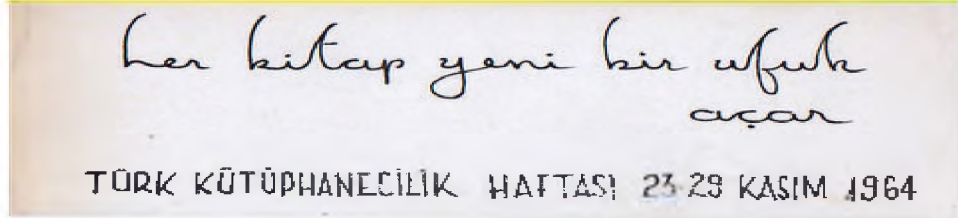 her kitap yeni bir ufuk
açar
TÜRK KÜTÜPHANECİLİK HAFTASI 23-29 KASIM 1964